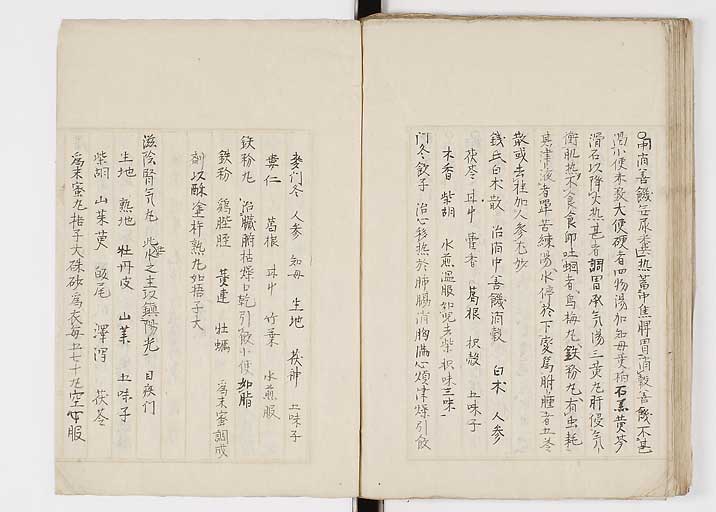 中消善饑 熱蓄中焦脾胃消穀善饑不甚
渇小便赤数大便硬者四物湯加知母黄柏石羔黄芩
滑石以降火熱甚者調胃承气湯三黄丸肝侵气
衝肌熱不食食即吐蛔者烏梅丸鉄粉丸有虫耗
其津液者單苦練湯水停於下変為胕腫者五苓
散或去桂加人参尤妙
錢氏白朮散 治消中善饑消穀 白朮 人参
茯苓 甘中 藿香 葛根 枳殻 五味子
木香 柴胡 水煎温服如能去柴枳味三味
門冬飲子 治心移熱於肺膈消胸滿心煩津燥引飲
麦门冬 人参 知母 生地 茯神 五味子
蔞仁 葛根 甘中 竹葉 水煎服
鉄粉丸 治臓腑枯燥口乾引飲小便如脂
鉄粉 鶏胵 黄連 牡蠣 為末蜜調成
剤以酥塗杵熟丸如梧子大
滋陰腎気丸 水之主以鎮陽光 目疾门
生地 熟地 牡丹皮 山茱 五味子
柴胡 山茱萸 皈尾 澤泻 茯苓
為末蜜丸梧子大硃砂為衣每五七十丸空心服